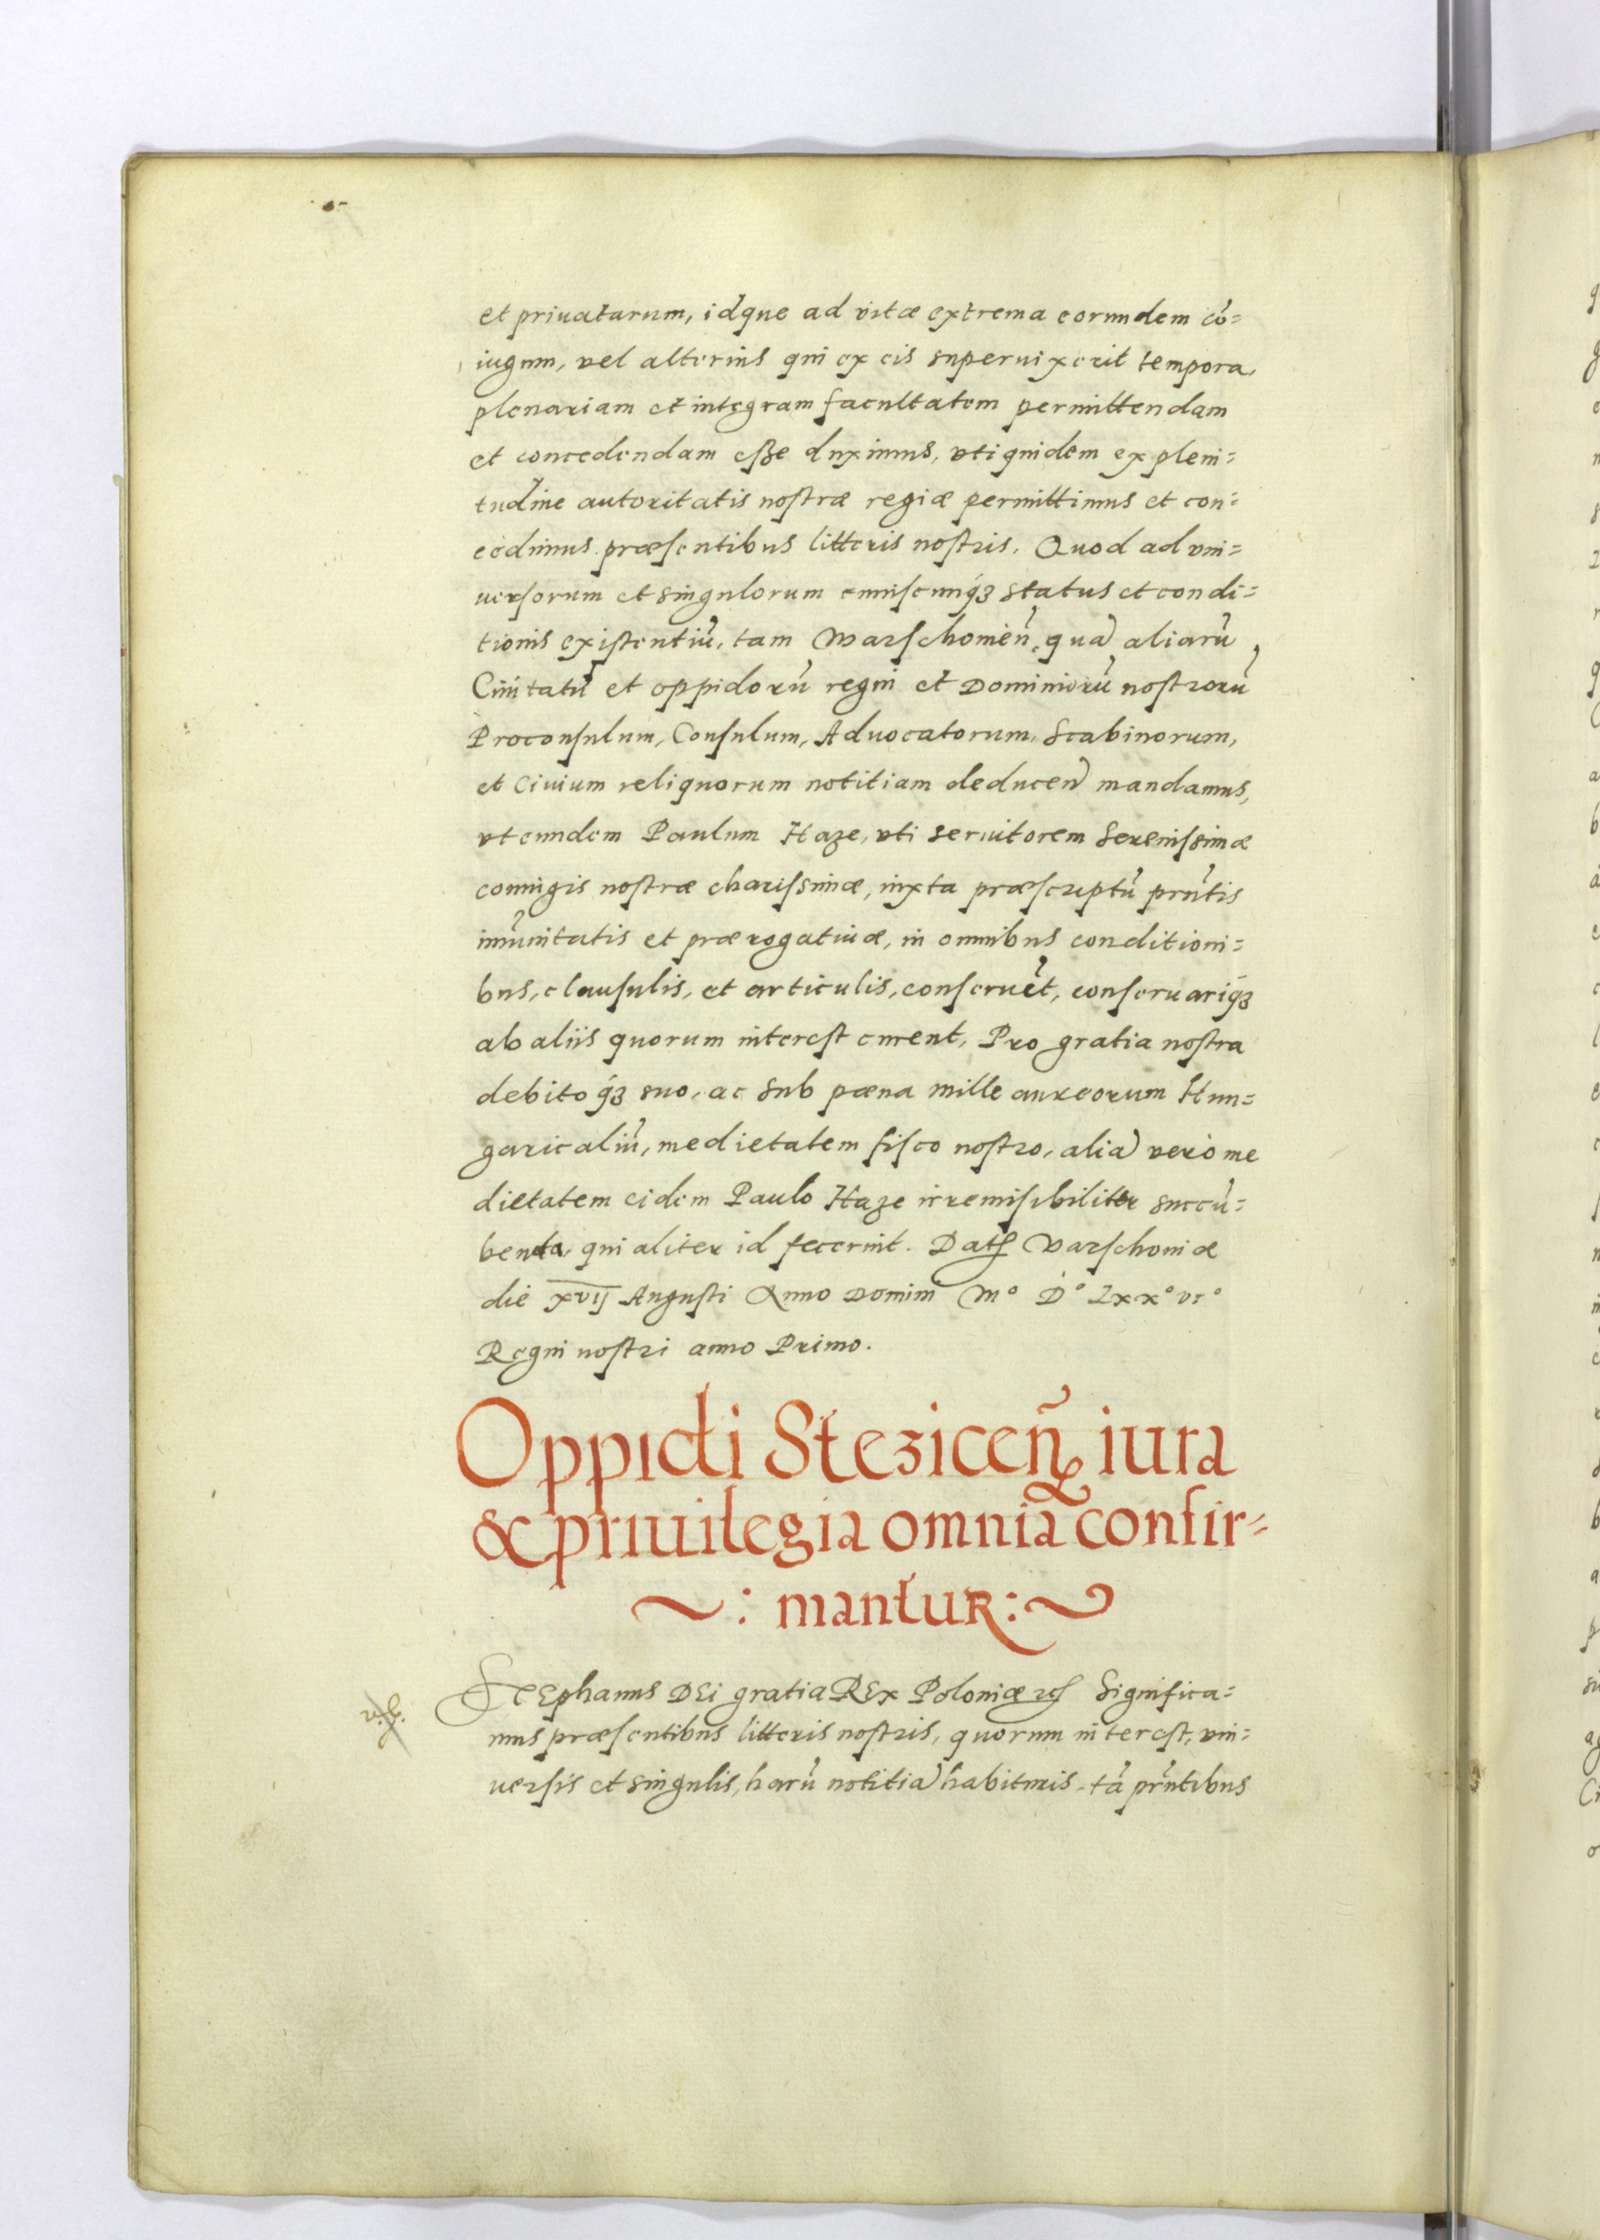 et priuatarum, idque ad vitæ extrema eorundem cō=
iugum, vel alterius qui ex eis superuixerit tempora,
plenariam et integram facultatem permittendam
et concedendam esse duximus, vti quidem ex pleni=
tudine autoritatis nostræ regiæ permittimus et con=
cedimus præsentibus litteris nostris. Quod ad vni=
uersorum et singulorum cuiuscunqꝫ status et condi=
tionis existentiū, tam Warschouieñ. quā aliarū
Ciuitatū et oppidorū regni et Dominiorū nostrorū
Proconsulum, Consulum, Aduocatorum, Scabinorum,
et Ciuium reliquorum notitiam deduceñ mandamus,
vt eundem Paulum Haze, vti seruitorem Serenissimæ
coniugis nostræ charissimæ, iuxta præscriptū prñtis
imūnitatis et prærogatiuæ, in omnibus conditioni=
bus, clausulis, et articulis, conseruēt, conseruariqꝫ
ab aliis quorum interest curent, Pro gratia nostra
debitoqꝫ suo, ac sub pæna mille aureorum Hun=
garicaliū, medietatem fisco nostro, aliā vero me
dietatem eidem Paulo Haze irremisibiliter succū=
benda, qui aliter id fecerint. Datꝭ Varschouiæ
die xvij Augusti Anno Domini Mº Dº Lxxº viº
Regni nostri anno Primo.
Oppidi Stezicen̄ iura
& priuilegia omnia confir=
~: mantur :~
Stephanus DEi gratia REx Poloniæ ꝛcꝭ Significa=
mus præsentibus litteris nostris, quorum interest, vni=
uersis et singulis, harū notitiā habituris, tā prñtibus